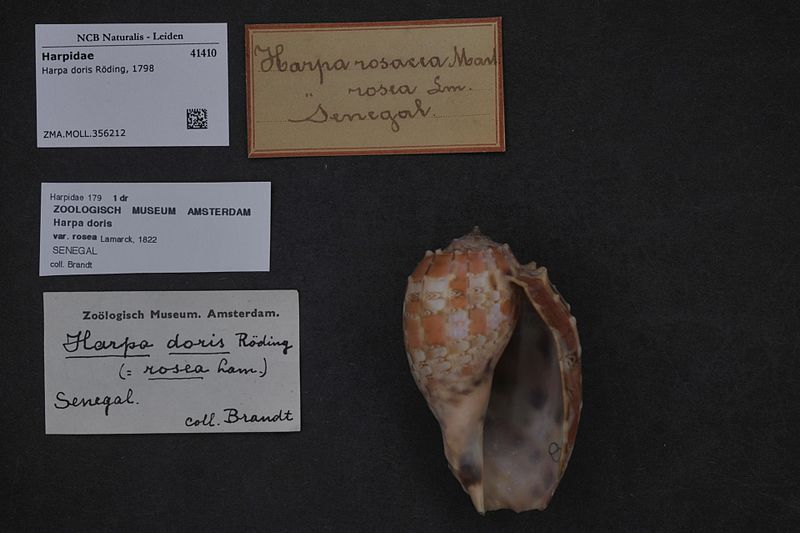 NCB Naturalis - Leiden
Harpidae 41410
Harpa doris Röding, 1798
ZMA.MOLL.356212
Harpa rosacea Mart
" rosea Lm.
Senegal.
Harpidae 179 1 dr
ZOOLOGISCH MUSEUM AMSTERDAM
Harpa doris
var. rosea Lamarck, 1822
SENEGAL
coll. Brandt
Zoölogisch Museum. Amsterdam.
Harpa doris Röding
(= rosea Lam.)
Senegal.
coll. Brandt